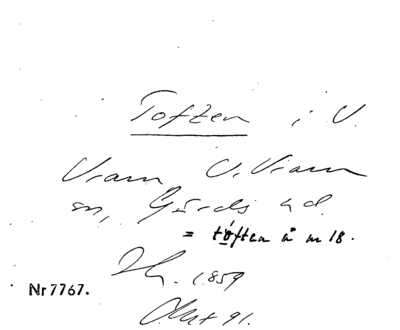 Toften i V.
Vram V. Vram
sn, Gärds hd.
= tóften å m 18.
1859
Nr 7767.
91.